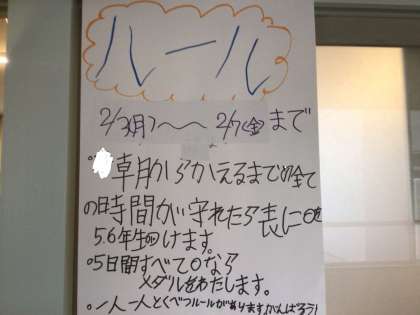 ルール
2/3(月)〜〜2/7(金)まで
。朝からかえるまでの全て
の時間が守れたら表に○を
5.6年生がつけます。
。5日間すべて○なら
メダルをわたします。
。一人一人とくべつルールがあります!がんばろう!